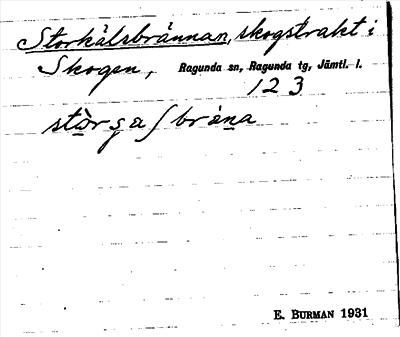 Storkälsbrännan, skogstrakt i
Skogen, Ragunda sn, Ragunda tg, Jämtl. l.
1 2 3
E. BURMAN 1931